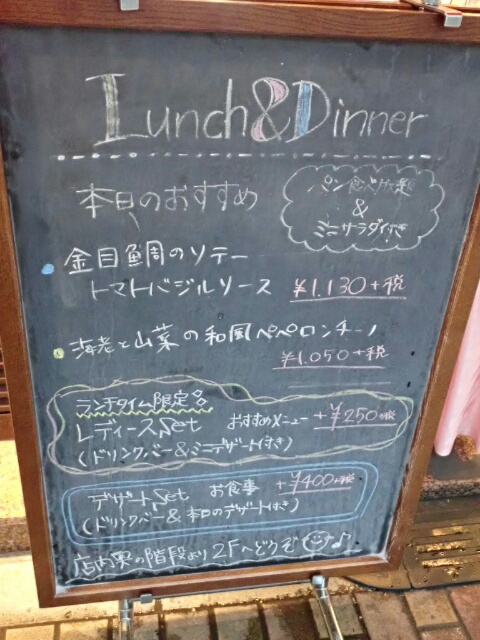 Lunch&Dinner
本日のおすすめ
パン食べ放題
&
ミニサラダ付き
金目鯛のソテー
トマトバジルソース ¥1.130+税
海老と山菜の和風ペペロンチーノ
¥1.050+税
ランチタイム限定
レディースSet おすすめメニュー+¥250+税
(ドリンクバー&ミニデザート付き)
デザートSet お食事+¥400+税
(ドリンクバー&本日のデザート付き)
店内奥の階段より2Fへどうぞ